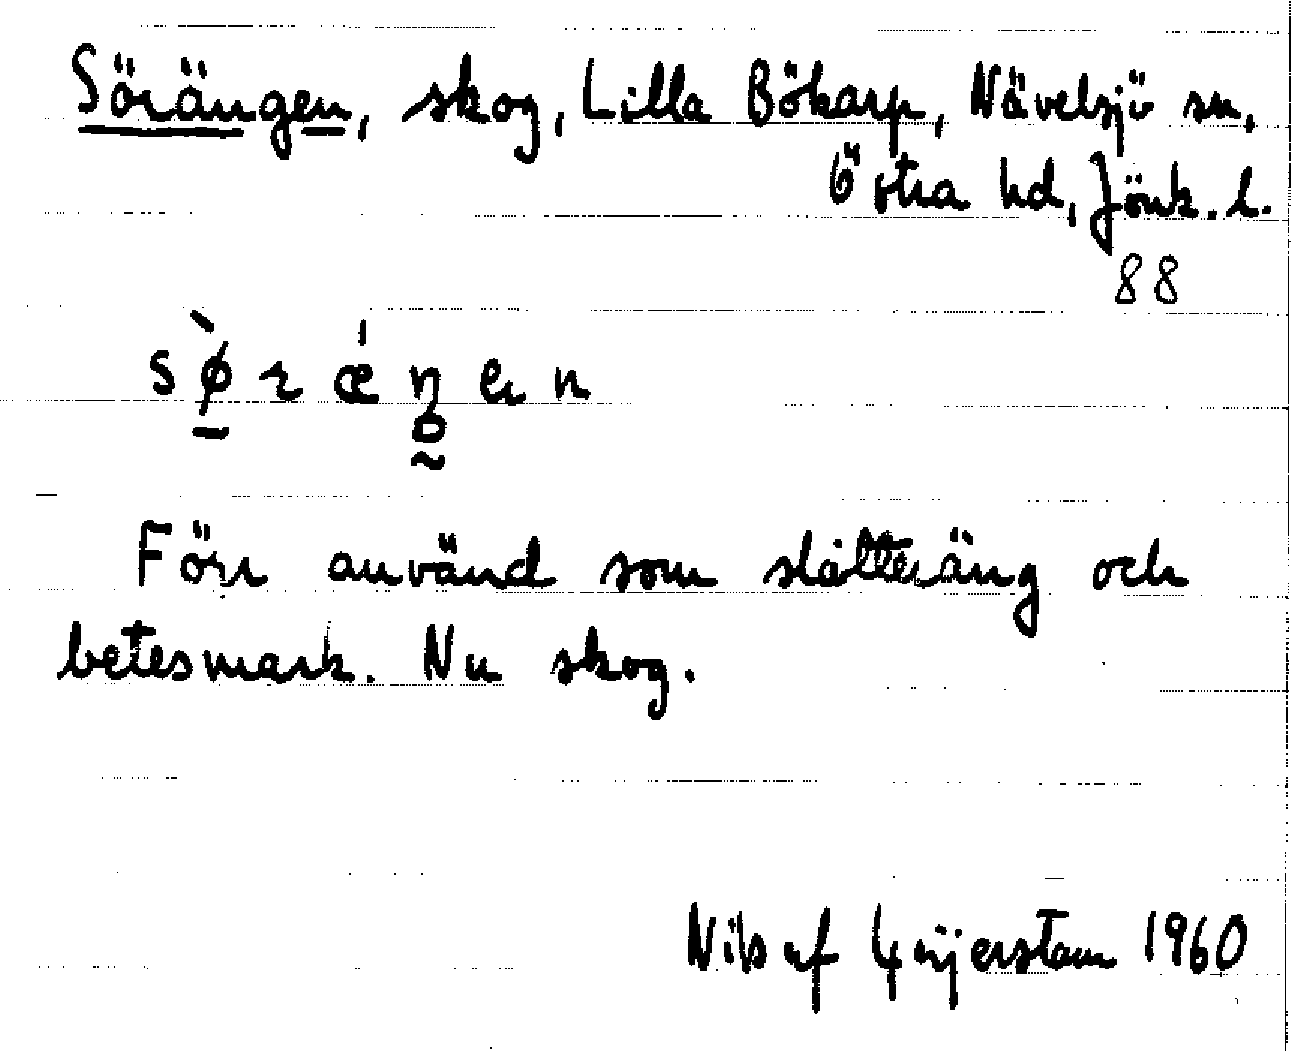 Sörängen, skog, Lilla Bökarp, Nävelsjö sn,
Östra hd, Jönk. l.
88
sø̠̀rǽŋ̥̰en
Förr använd som slåtteräng och
betesmark. Nu skog.
Nils uf Geijerstam 1960